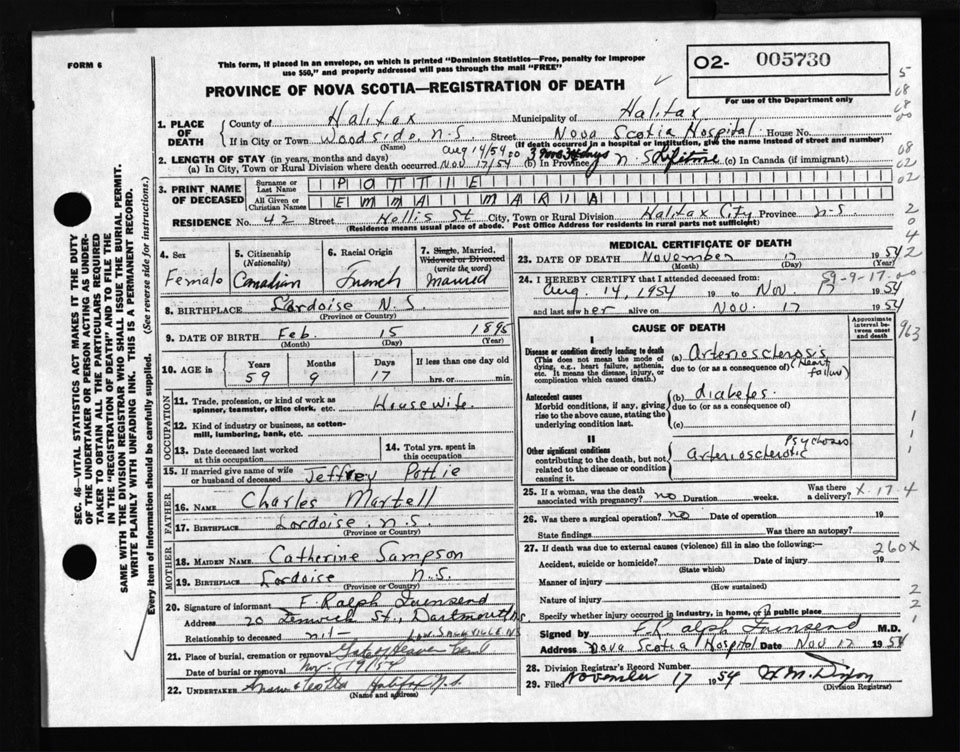 FORM 6
This form, if placed in an envelope, on which is printed "Dominion Statistics—Free, penalty for improper
use $50," and properly addressed will pass through the mail "FREE"
O2- 005730
For use of the Department only
PROVINCE OF NOVA SCOTIA—REGISTRATION OF DEATH
1. PLACE OF DEATH
County of Halifax Municipality of Halifax
If in City or Town Woodside, N.S. Street Nova Scotia Hospital House No.
(Name) (If death occurred in a hospital or institution, give the name instead of street and number)
2. LENGTH OF STAY (in years, months and days) Aug 14/54
(a) In City, Town or Rural Division where death occurred Nov 17/54 (b) In Province N.S. Lifetime (c) In Canada (if immigrant)
3. PRINT NAME OF DECEASED
Surname or Last Name POTTIE
All Given or Christian Names EMMA MARIA
RESIDENCE No. 42 Street Hollis St City, Town or Rural Division Halifax City Province N-S
(Residence means usual place of abode. Post Office Address for residents in rural parts not sufficient)
4. Sex
Female
5. Citizenship
(Nationality)
Canadian
6. Racial Origin
French
7. Single, Married,
Widowed or Divorced
(write the word)
Married
8. BIRTHPLACE Lardoise N.S.
(Province or Country)
9. DATE OF BIRTH Feb. 15 1895
(Month) (Day) (Year)
10. AGE in Years Months Days If less than one day old
59 9 17 hrs. or min.
OCCUPATION
11. Trade, profession, or kind of work as
spinner, teamster, office clerk, etc. Housewife
12. Kind of industry or business, as cotton-
mill, lumbering, bank, etc.
13. Date deceased last worked
at this occupation
14. Total yrs. spent in
this occupation
15. If married give name of wife
or husband of deceased Jeffrey Pottie
FATHER
16. NAME Charles Martell
17. BIRTHPLACE Lardoise, N.S.
(Province or Country)
MOTHER
18. MAIDEN NAME Catherine Sampson
19. BIRTHPLACE Lordoise N.S.
(Province or Country)
20. Signature of informant F. Ralph Townsend
Address 20 St., Dartmouth NS
Relationship to deceased nil
21. Place of burial, cremation or removal Gate of Heaven Cem
LOW. SACKVILLE NS
Date of burial or removal Nov. 19/54
22. UNDERTAKER Halifax N.S.
(Name and address)
MEDICAL CERTIFICATE OF DEATH
23. DATE OF DEATH November 17 1954
(Month) (Day) (Year)
24. I HEREBY CERTIFY that I attended deceased from: 59-9-17
Aug. 14, 1954 19 to Nov. 17 1954
and last saw her alive on Nov. 17 1954
CAUSE OF DEATH
Approximate
interval be-
tween onset
and death
I
Disease or condition directly leading to death
(This does not mean the mode of
dying, e.g., heart failure, asthenia,
etc. It means the disease, injury, or
complication which caused death.)
(a) Arteriosclerosis
due to (or as a consequence of) (Heart
Failure)
Antecedent causes
Morbid conditions, if any, giving
rise to the above cause, stating the
underlying condition last.
(b) diabetes
due to (or as a consequence of)
(c)
II
Other significant conditions
contributing to the death, but not
related to the disease or condition
causing it.
Psychosis
arteriosclerotic
25. If a woman, was the death
associated with pregnancy? no Duration weeks. Was there
a delivery? X-17-4
26. Was there a surgical operation? no Date of operation 19
State findings Was there an autopsy?
27. If death was due to external causes (violence) fill in also the following:— 260X
Accident, suicide or homicide? Date of injury 19
(State which)
Manner of injury
(How sustained)
Nature of injury
Specify whether injury occurred in industry, in home, or in public place
Signed by F. Ralph Townsend M.D.
Address Nova Scotia Hospital Date Nov 17 1954
28. Division Registrar's Record Number
29. Filed November 17 1954 Dixon
(Division Registrar)
SEC. 46—VITAL STATISTICS ACT MAKES IT THE DUTY
OF THE UNDERTAKER OR PERSON ACTING AS UNDER-
TAKER TO OBTAIN ALL THE PARTICULARS REQUIRED
IN THE "REGISTRATION OF DEATH" AND TO FILE THE
SAME WITH THE DIVISION REGISTRAR WHO SHALL ISSUE THE BURIAL PERMIT.
WRITE PLAINLY WITH UNFADING INK. THIS IS A PERMANENT RECORD.
Every item of information should be carefully supplied. (See reverse side for instructions.)
5
08
08
00
08
02
02
2
0
4
2
963
1
1
2
2
1